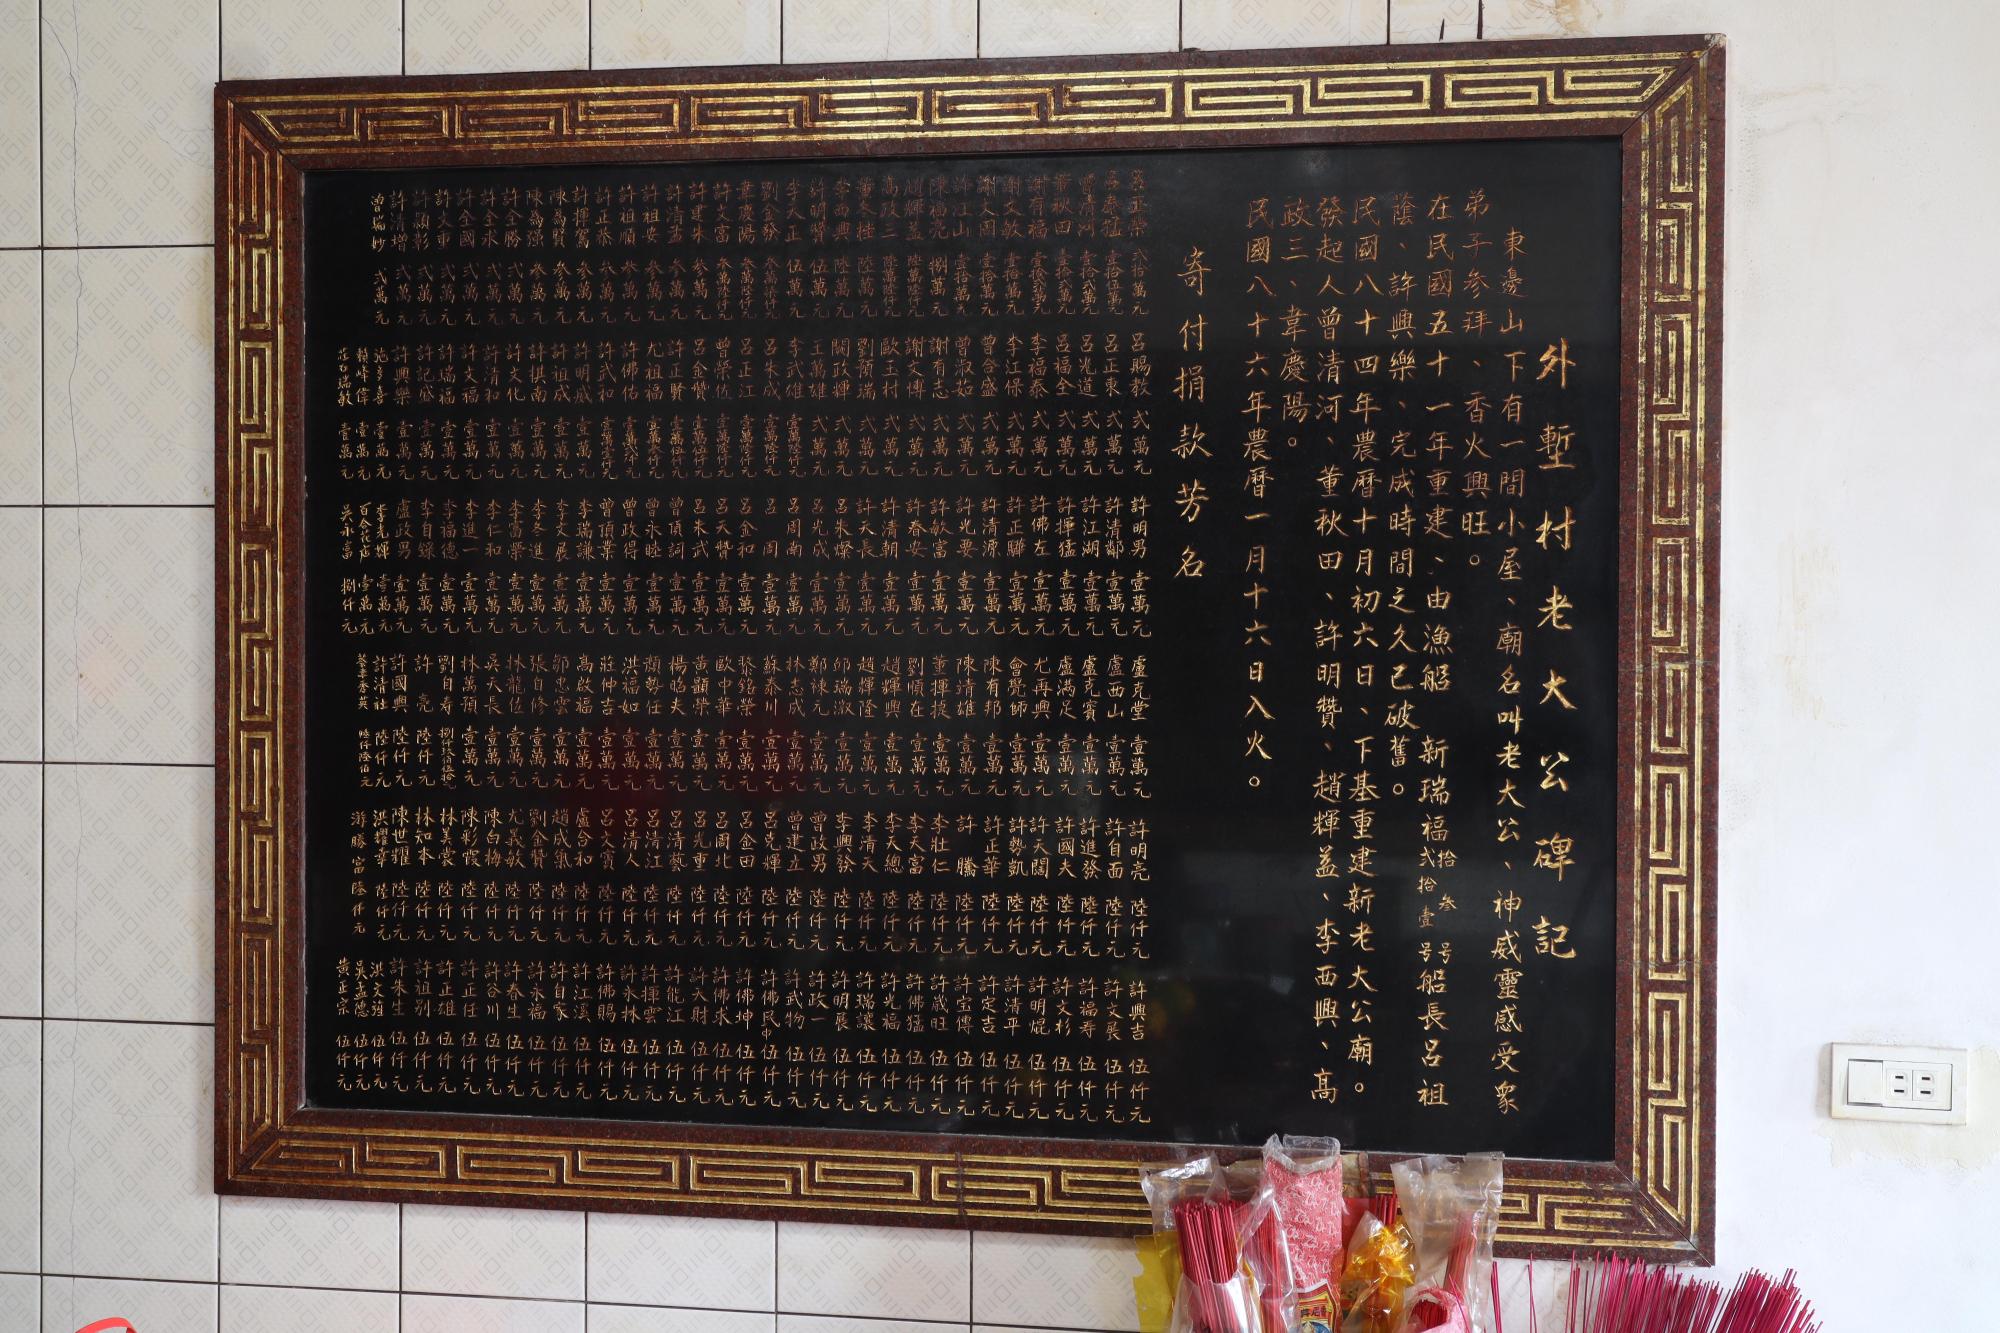 外塹村老大公碑記
東邊山下有一間小屋、廟名叫老大公、神威靈感受眾
弟子參拜、香火興旺。
在民國五十一年重建、由漁船 新瑞福拾參号貳拾壹号船長呂祖
蔭、許興樂、完成時間之久已破舊。
民國八十四年農曆十月初六日、下基重建新老大公廟。
發起人曾清河、董秋田、許明贊、趙輝益、李西興、高
政三、韋慶陽。
民國八十六年農曆一月十六日入火。
寄付捐款芳名
呂正榮 弍拾萬元
曾清河 壹拾弍萬元
董秋田 壹拾弍萬元
謝有福 壹拾弍萬元
謝文敏 壹拾萬元
謝文國 壹拾萬元
許江山 壹拾萬元
陳福亮 捌萬元
趙輝益 陸萬元
李西興 陸萬元
許明贊 伍萬元
李天正 伍萬元
許建朱 參萬元
許清孟 參萬元
許祖安 參萬元
許祖順 參萬元
許正恭 參萬元
許揮篤 參萬元
陳為賢 參萬元
陳為強 參萬元
許全勝 弍萬元
許全永 弍萬元
許全國 弍萬元
許文重 弍萬元
許顯彰 弍萬元
許清增 弍萬元
曾瑞妙 弍萬元
呂賜教 弍萬元
呂正東 弍萬元
呂光道 弍萬元
呂福全 弍萬元
李福泰 弍萬元
李江保 弍萬元
曾合盛 弍萬元
曾淑茹 弍萬元
謝有志 弍萬元
謝文博 弍萬元
歐王村 弍萬元
劉簡瑞 弍萬元
闕政輝 弍萬元
王萬雄 弍萬元
許武和 壹萬壹仟元
許明威 壹萬元
許祖成 壹萬元
許棋南 壹萬元
許文化 壹萬元
許清和 壹萬元
許文福 壹萬元
許瑞福 壹萬元
許記盛 壹萬元
許興樂 壹萬元
施多喜 壹萬元
賴峰偉 壹萬元
莊石瑞敏 壹萬元
許明男 壹萬元
許清鄰 壹萬元
許江湖 壹萬元
許揮猛 壹萬元
許佛左 壹萬元
許正聯 壹萬元
許清源 壹萬元
許光要 壹萬元
許敏富 壹萬元
許春安 壹萬元
許清朝 壹萬元
許天長 壹萬元
呂朱燦 壹萬元
呂光成 壹萬元
呂周南 壹萬元
呂周 壹萬元
呂金和 壹萬元
呂天贊 壹萬元
呂朱武 壹萬元
曾頂詞 壹萬元
曾永睦 壹萬元
曾政得 壹萬元
曾頂業 壹萬元
李瑞謙 壹萬元
李文展 壹萬元
李冬進 壹萬元
李富榮 壹萬元
李仁和 壹萬元
李進一 壹萬元
李福德 壹萬元
李自錸 壹萬元
盧政男 壹萬元
李光輝 壹萬元
百合花店 壹萬元
吳永富 捌仟元
盧克堂 壹萬元
盧西山 壹萬元
盧克賓 壹萬元
盧滿足 壹萬元
尤再興 壹萬元
會覺師 壹萬元
陳有邦 壹萬元
陳靖雄 壹萬元
董揮摸 壹萬元
劉順在 壹萬元
趙輝興 壹萬元
趙輝隆 壹萬元
邱瑞淑 壹萬元
鄭諫元 壹萬元
林志成 壹萬元
蘇泰川 壹萬元
黎銘榮 壹萬元
歐中華 壹萬元
黃顯榮 壹萬元
楊皓夫 壹萬元
顏勢任 壹萬元
洪福如 壹萬元
莊仲吉 壹萬元
高啟福 壹萬元
鄒忠雲 壹萬元
張自修 壹萬元
林龍伍 壹萬元
吳天長 壹萬元
林萬預 壹萬元
劉自壽 捌仟陸佰拾元
許亮 陸仟元
許國興 陸仟元
許清社 陸仟元
陸仟陸佰元
許明亮 陸仟元
許自面 陸仟元
許進發 陸仟元
許國夫 陸仟元
許天闊 陸仟元
許勢凱 陸仟元
許正華 陸仟元
許騰 陸仟元
李壯仁 陸仟元
李天富 陸仟元
李天總 陸仟元
李清天 陸仟元
李興發 陸仟元
曾政男 陸仟元
曾建立 陸仟元
呂克輝 陸仟元
呂金田 陸仟元
呂周北 陸仟元
呂光重 陸仟元
呂清藝 陸仟元
呂清江 陸仟元
呂清人 陸仟元
呂文賓 陸仟元
盧合和 陸仟元
趙成氣 陸仟元
劉金贊 陸仟元
尤義敏 陸仟元
陳白梅 陸仟元
陳彩霞 陸仟元
林美裳 陸仟元
林知本 陸仟元
陳世耀 陸仟元
洪耀幸 陸仟元
游勝富 陸仟元
許興吉 伍仟元
許文展 伍仟元
許福壽 伍仟元
許文杉 伍仟元
許明焜 伍仟元
許清平 伍仟元
許定吉 伍仟元
許宝傳 伍仟元
許歲旺 伍仟元
許佛猛 伍仟元
許光福 伍仟元
許瑞讓 伍仟元
許明展 伍仟元
許政一 伍仟元
許武物 伍仟元
許佛民 伍仟元
許佛坤 伍仟元
許佛求 伍仟元
許天財 伍仟元
許能江 伍仟元
許揮雲 伍仟元
許永林 伍仟元
許佛賜 伍仟元
許江溪 伍仟元
許自家 伍仟元
許永福 伍仟元
許春生 伍仟元
許谷川 伍仟元
許正任 伍仟元
許正雄 伍仟元
許祖別 伍仟元
許朱生 伍仟元
洪文雄 伍仟元
吳孟德 伍仟元
黃正宗 伍仟元